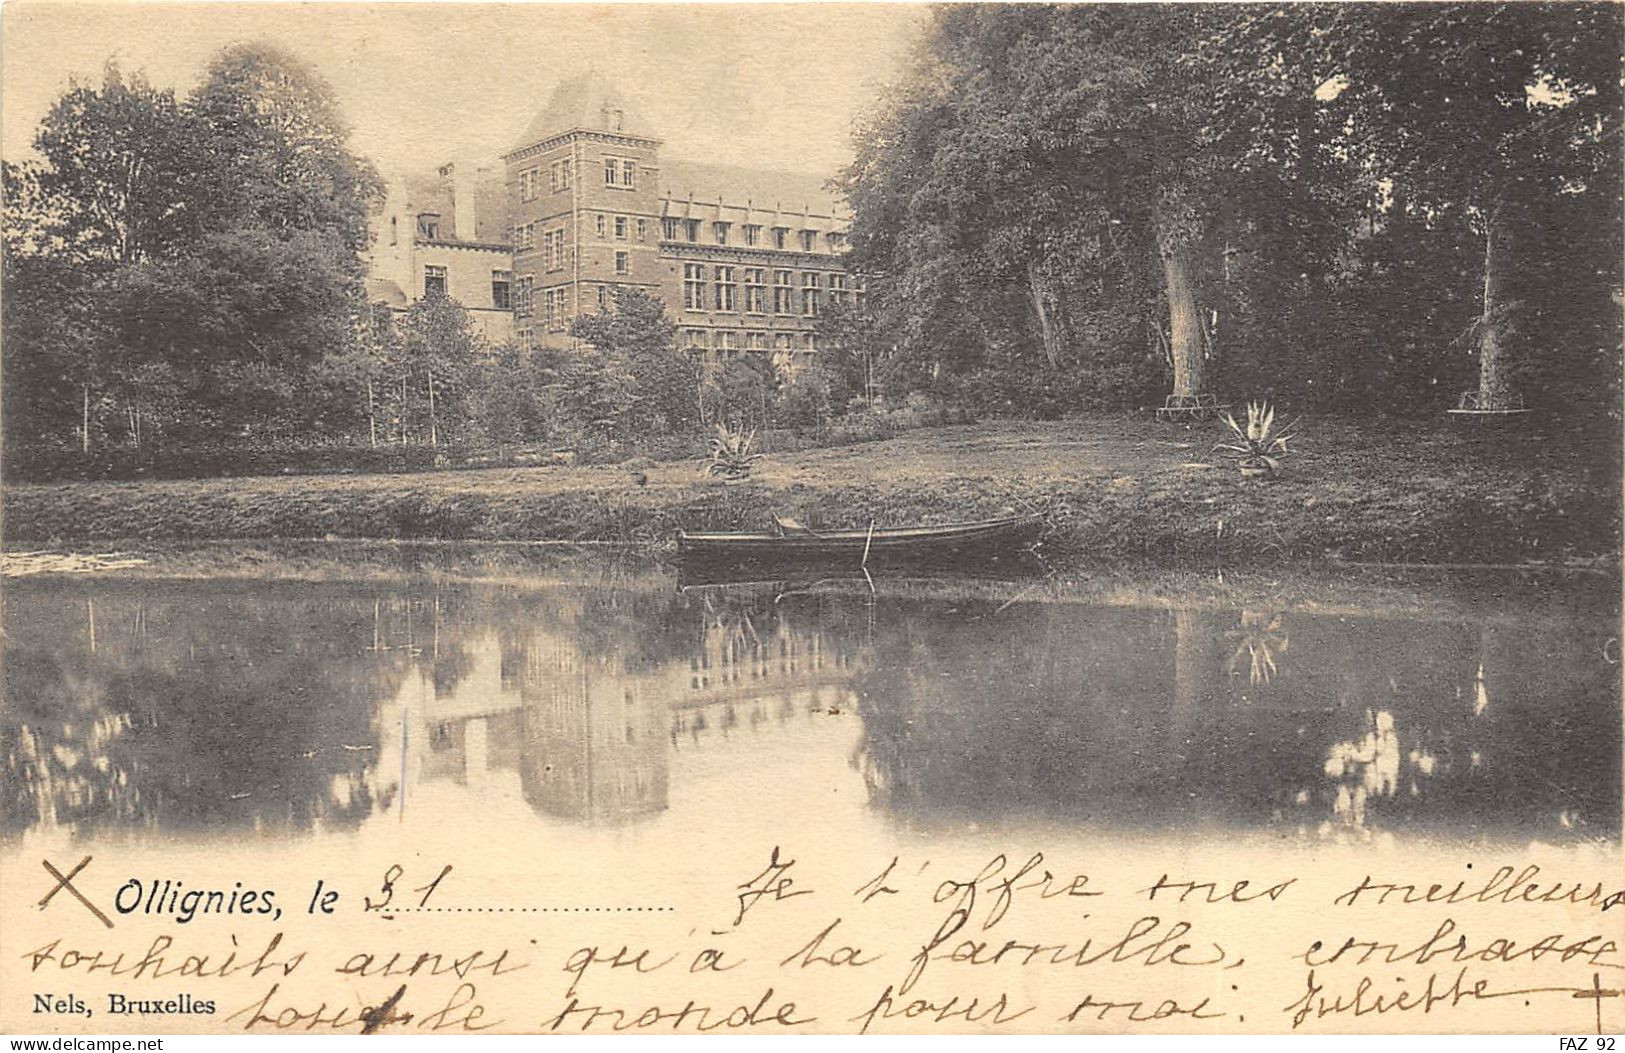 Ollignies, le 31 Je t'offre mes meilleurs
souhaits ainsi qu'à ta famille, embrasse
Nels, Bruxelles tout le monde pour moi. Juliette.
delcampe.net
FAZ 92